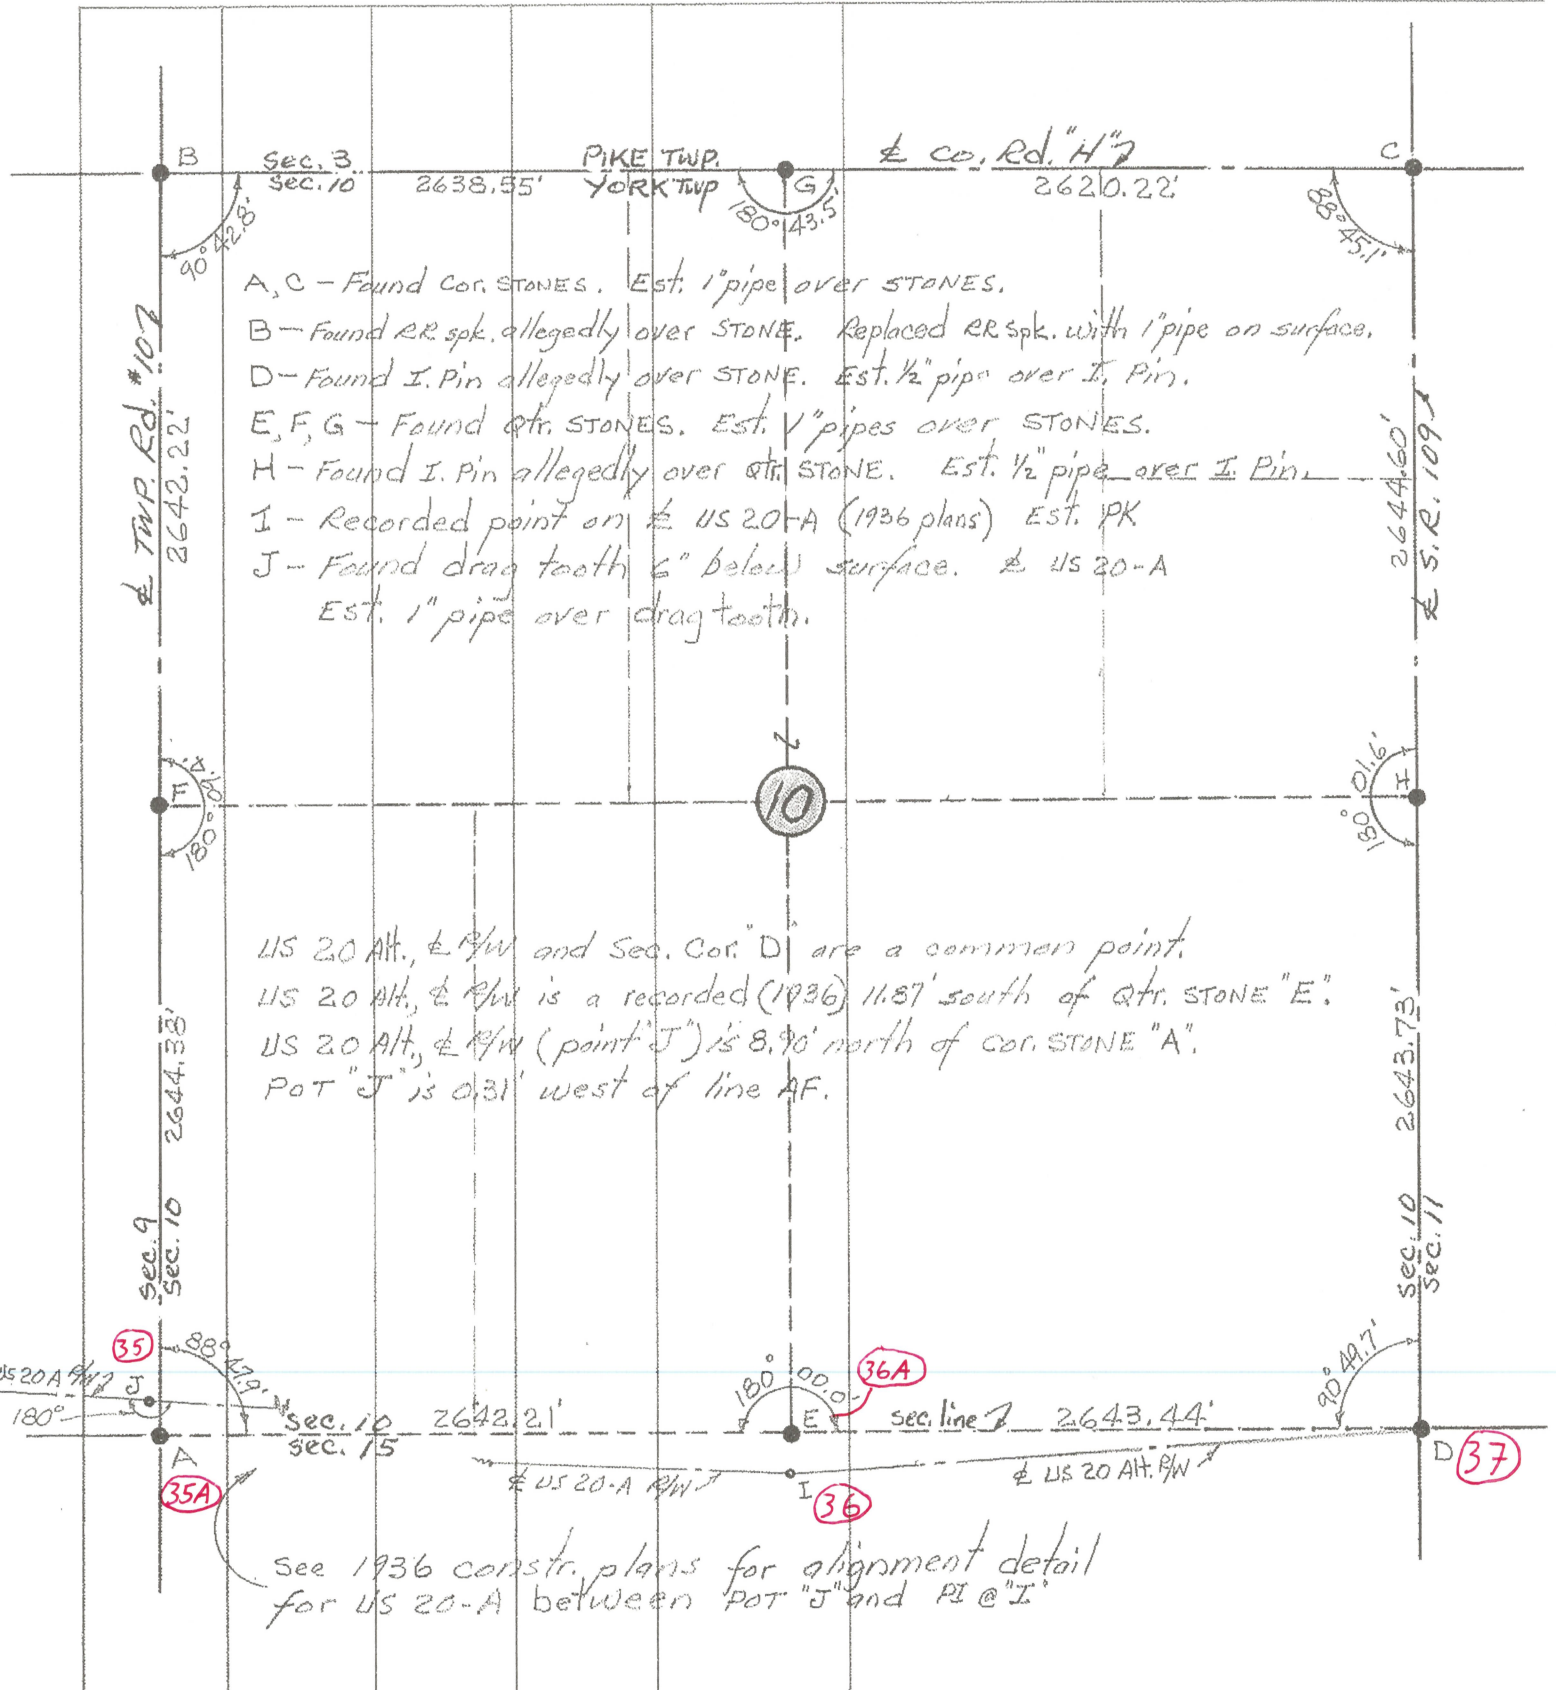 B
Sec. 3
Sec. 10
2638.55'
PIKE TWP.
YORK TWP
G
℄ Co. Rd. "H"
2620.22'
C
90° 42.8'
180° 43.5'
88° 45.1'
A, C – Found Cor. STONES. Est. 1" pipe over STONES.
B – Found RR spk. allegedly over STONE. Replaced RR spk. with 1" pipe on surface.
D – Found I. Pin allegedly over STONE. Est. ½" pipe over I. Pin.
E, F, G – Found Qtr. STONES. Est. 1" pipes over STONES.
H – Found I. Pin allegedly over Qtr. STONE. Est. ½" pipe over I. Pin.
I – Recorded point on ℄ US 20-A (1936 plans) Est. PK
J – Found drag tooth 6" below surface. ℄ US 20-A
Est. 1" pipe over drag tooth.
℄ TWP. Rd. #10
2642.22'
2644.60'
℄ S.R. 109
F
180°
10
H
180° 01.6'
US 20 Alt., ℄ R/W and Sec. Cor. "D" are a common point.
US 20 Alt., ℄ R/W is a recorded (1936) 11.87' south of Qtr. STONE "E".
US 20 Alt., ℄ R/W (point "J") is 8.90' north of cor. STONE "A".
POT "J" is 0.31' west of line AF.
2644.38'
2643.73'
Sec. 9
Sec. 10
Sec. 10
Sec. 11
35
88° 47.9'
US 20 A R/W
J
180°
Sec. 10
Sec. 15
2642.21'
180° 00.0'
36A
E
sec. line
2643.44'
90° 49.7'
A
35A
℄ US 20-A R/W
I
36
℄ US 20 Alt. R/W
D
37
See 1936 constr. plans for alignment detail
for US 20-A between POT "J" and PI @ "I"